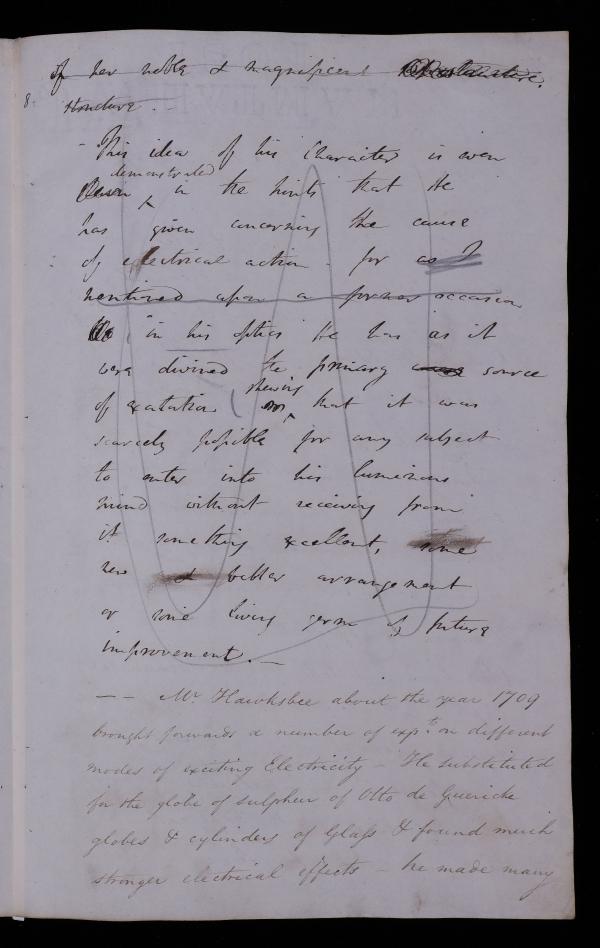 of her noble & magnificent
8. structure. -
- This idea of his Character is even
demonstrated
in the hints that He
has given concerning the cause
of electrical action - for as I
mentioned upon a former occasion
in his optics He has as it
were divined the primary cause source
of excitation shewing
that it was
scarcely possible for any subject
to enter into his luminous
mind without receiving from
it something excellent, some
new & better arrangement
or some living germ of future
improvement. -
- - Mr. Hawksbee about the year 1709
brought forwards a number of expts on different
modes of exciting Electricity - He substituted
for the globe of sulphur of Otto de Guericke
globes & cylinders of Glass & found much
stronger electrical effects - he made many